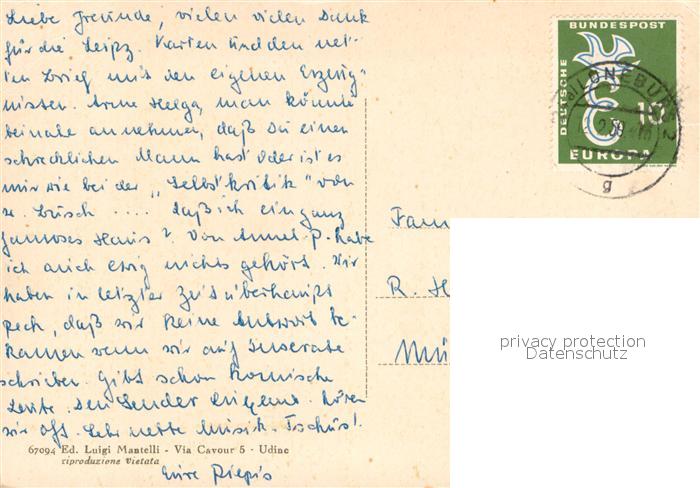 Liebe Freunde, vielen vielen Dank
für die Leipz. Karten und den net-
ten Brief mit den eigenen Erzeug-
nissen. Arme Helga, man könnte
beinahe annehmen, daß Du einen
schrecklichen Mann hast oder ist es
mir wie bei der „Selbstkritik" von
W. Busch .... daß ich ein ganz
famoses Haus? Von Annel P. habe
ich auch ewig nichts gehört. Wir
haben in letzter Zeit überhaupt
Pech, daß wir keine Antwort be-
kamen wenn wir auf Inserate
schrieben. Gibt schon komische
Leute. Den Sender hören
wir oft. Sehr nette Musik. Tschüs!
Eure
67094 Ed. Luigi Mantelli - Via Cavour 5 - Udine
riproduzione vietata
DEUTSCHE BUNDESPOST
10
EUROPA
LÜNEBURG 2
59
g
Fam
R. H
Mü
privacy protection
Datenschutz